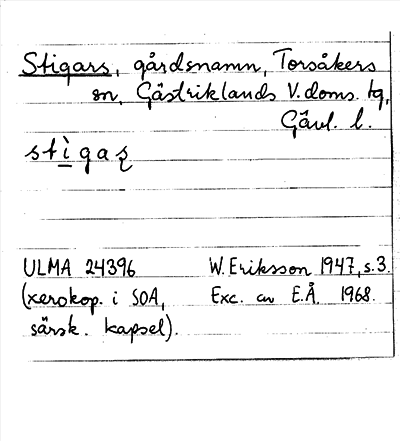 Stigars, gårdsnamn, Torsåkers
sn, Gästriklands V. doms. tg,
Gävl. l.
stìgaʐ
ULMA 24396 W. Eriksson 1947, s. 3.
(xerokop. i SOA, Exc. av E.Å. 1968.
särsk. kapsel).